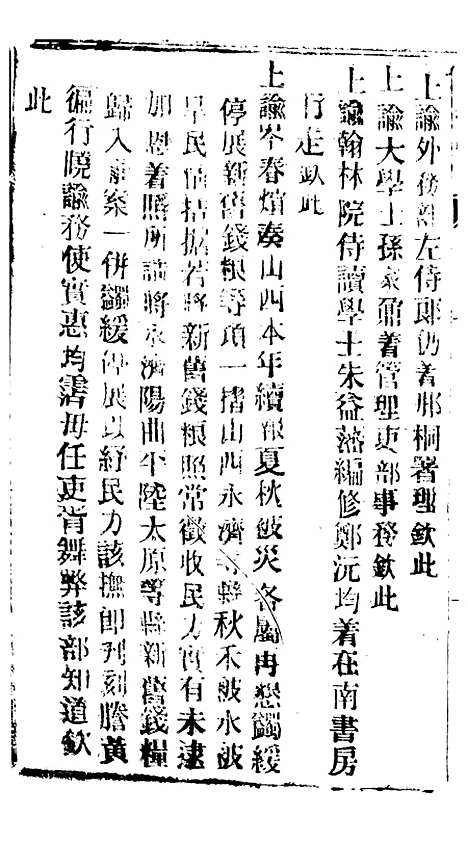 上諭外務部左侍郎仍著那桐署理欽此
上諭大學士孫家鼐着管理吏部事務欽此
上諭翰林院侍讀學士朱益藩編修鄭沅均着在南書房
行走欽此
上諭岑春煊奏山西本年續報夏秋被災各屬冉懇蠲緩
停展新舊錢粮等項一摺山西永濟等縣秋禾被水被
旱民情拮据若將新舊錢粮照常徵收民力實有未逮
加恩着照所請將永濟陽曲平陸太原等縣新舊錢糧
歸入前案一併蠲緩停展以紓民力該撫即刋刻謄黃
徧行曉諭務使實惠均霑毋任吏胥舞弊該部知道欽
此